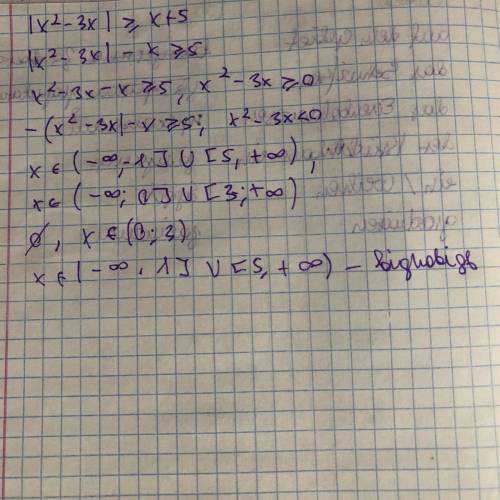 |x²-3x| ≥ x+5
|x²-3x| - x ≥ 5
x²-3x-x ≥ 5, x²-3x ≥ 0
-(x²-3x)-x ≥ 5; x²-3x<0
x ∈ (-∞,-1] ∪ [5,+∞),
x ∈ (-∞; 0] ∪ [3;+∞)
∅, x ∈ (0; 3)
x ∈ (-∞, 1] ∪ [5, +∞) - відповідь